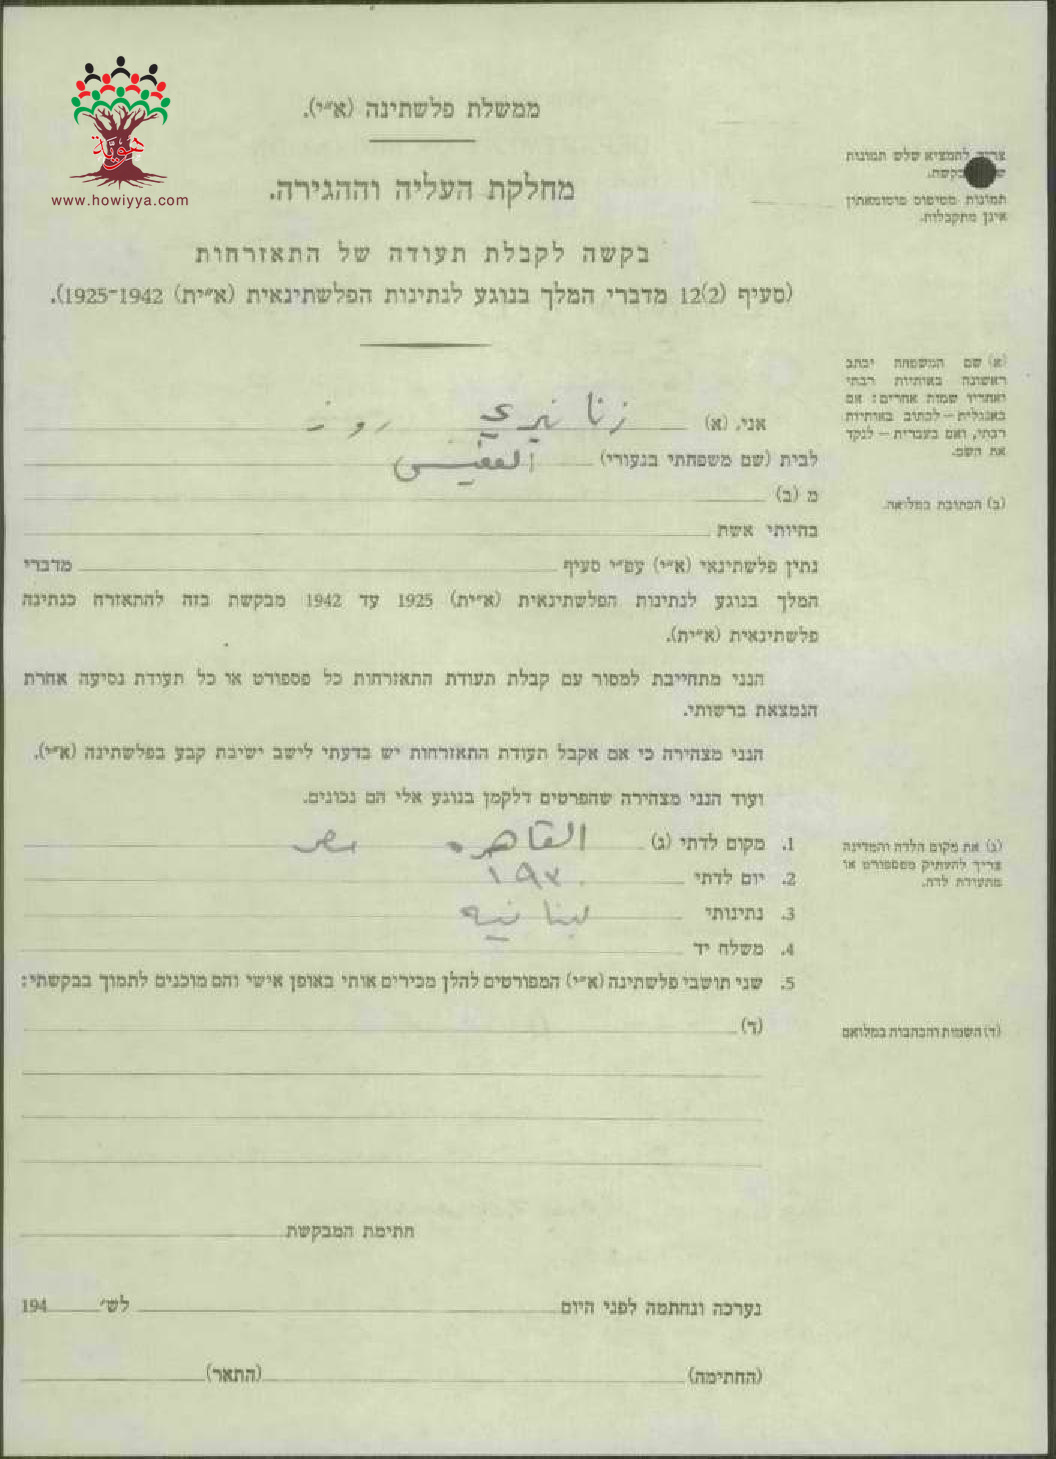 هوية
www.howiyya.com
ממשלת פלשתינה (א״י).
מחלקת העליה וההגירה.
בקשה לקבלת תעודה של התאזרחות
(סעיף 12(2) מדברי המלך בנוגע לנתינות הפלשתינאית (א״ית) 1925-1942).
צריך להמציא שלש תמונות
תמונות מטיפוס פוטומאתון
אינן מתקבלות.
(א) שם המשפחה יכתב
ראשונה באותיות רבתי
ואחריו שמות אחרים: אם
באנגלית – לכתוב באותיות
רבתי, ואם בעברית – לנקד
את השם.
אני, (א) زنانيري روز
לבית (שם משפחתי בנעורי)
מ (ב)
(ב) הכתובת במלואה.
בהיותי אשת
נתין פלשתינאי (א״י) עפ״י סעיף מדברי
המלך בנוגע לנתינות הפלשתינאית (א״ית) 1925 עד 1942 מבקשת בזה להתאזרח כנתינה
פלשתינאית (א״ית).
הנני מתחייבת למסור עם קבלת תעודת התאזרחות כל פספורט או כל תעודת נסיעה אחרת
הנמצאת ברשותי.
הנני מצהירה כי אם אקבל תעודת התאזרחות יש בדעתי לישב ישיבת קבע בפלשתינה (א״י).
ועוד הנני מצהירה שהפרטים דלקמן בנוגע אלי הם נכונים.
1. מקום לדתי (ג) القاهره مصر
(ג) את מקום הלדה והמדינה
צריך להעתיק מפספורט או
מתעודת לדה.
2. יום לדתי
3. נתינותי لبنانيه
4. משלח יד
5. שני תושבי פלשתינה (א״י) המפורטים להלן מכירים אותי באופן אישי והם מוכנים לתמוך בבקשתי:
(ד)
(ד) השמות והכתבות במלואם
חתימת המבקשת
נערכה ונחתמה לפני היום לש׳ 194
(החתימה) (התאר)